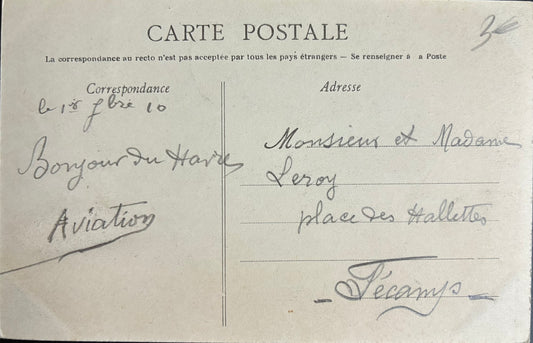 CARTE POSTALE
3€
La correspondance au recto n'est pas acceptée par tous les pays étrangers — Se renseigner à a Poste
Correspondance
le 1er 7bre 10
Bonjour du Havre
Aviation
Adresse
Monsieur et Madame
Leroy
place des Hallettes
- Fécamp -